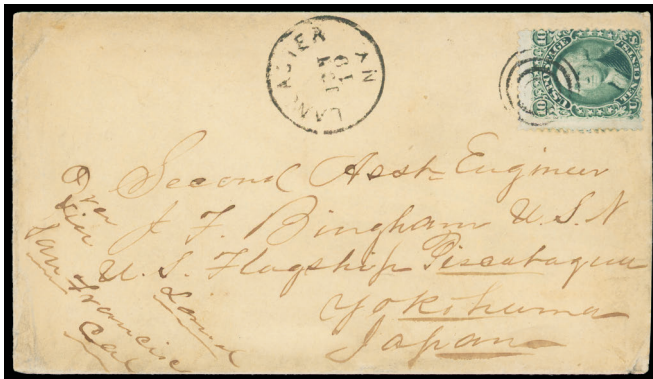 LANCASTER
N.Y
19
U.S. POSTAGE
TEN CENTS
10 10
Second Asst Engineer
J. F. Bingham U.S.N
U.S. Flagship Piscataqua
Yokohuma
Japan
Over Land
via
San Francisco
Cal